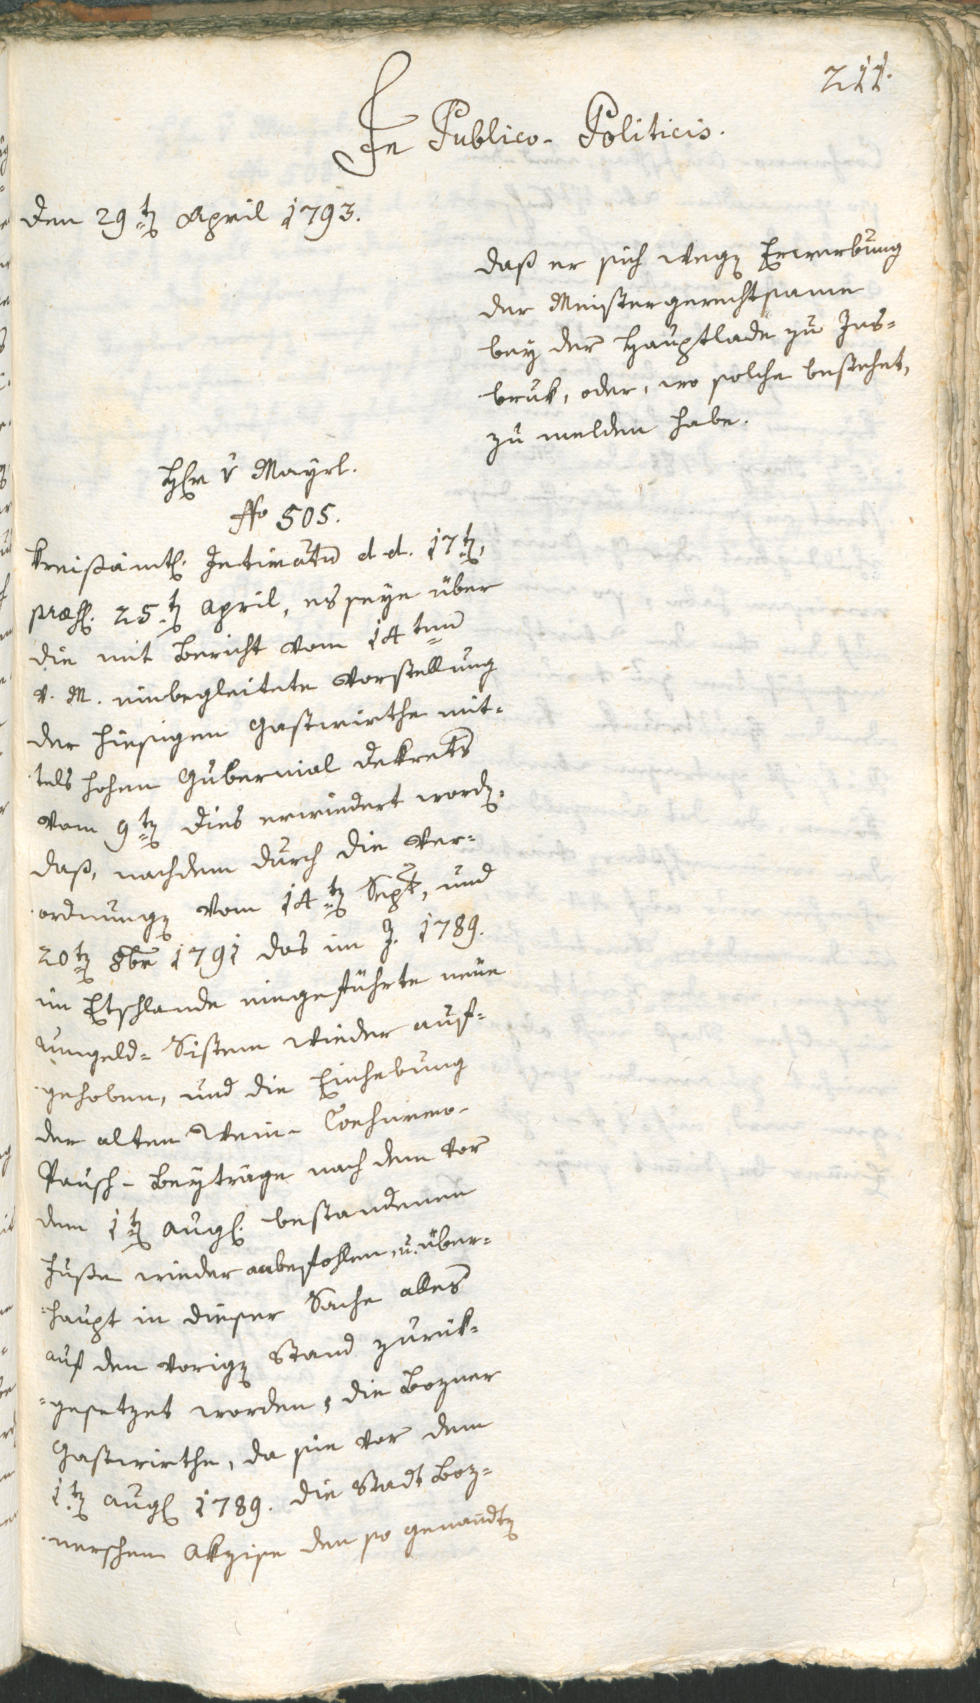 211.
In Publico-Politicis.
den 29tn April 1793.
daß er sich wegn Erwerbung
der Meistergerechtsame
bey der Hauptlade zu Ins=
bruk, oder, wo solche bestehet,
zu melden habe.
H: v Mayrl.
No 505.
Kreisämtl: Intimatum d. d. 17tn,
præs: 25.tn April, es seye über
die mit Bericht vom 14ten
v. M. einbegleitete Vorstellung
der hiesigen Gastwirthe mit=
tels hohen Gubernial Dekrets
vom 9tn dies erwiedert wordn,
daß, nachdem durch die Ver=
ordnungn vom 14tn Sept, und
20tn 8br 1791 das im J. 1789.
im Etschlande eingeführte neue
Umgeld= Sistem wieder auf=
gehoben, und die Einhebung
der alten Wein- Consumo-
Pausch- Beyträge nach dem vor
dem 1tn Aug: bestandenen
Fuße wieder anbefohlen, u. über=
haupt in dieser Sache alles
auf den vorign Stand zurük=
=gesetzet worden, die Bozner
Gastwirthe, da sie vor dem
1tn Aug: 1789. die Stadt Boz=
nerschen Akzise den so genandtn